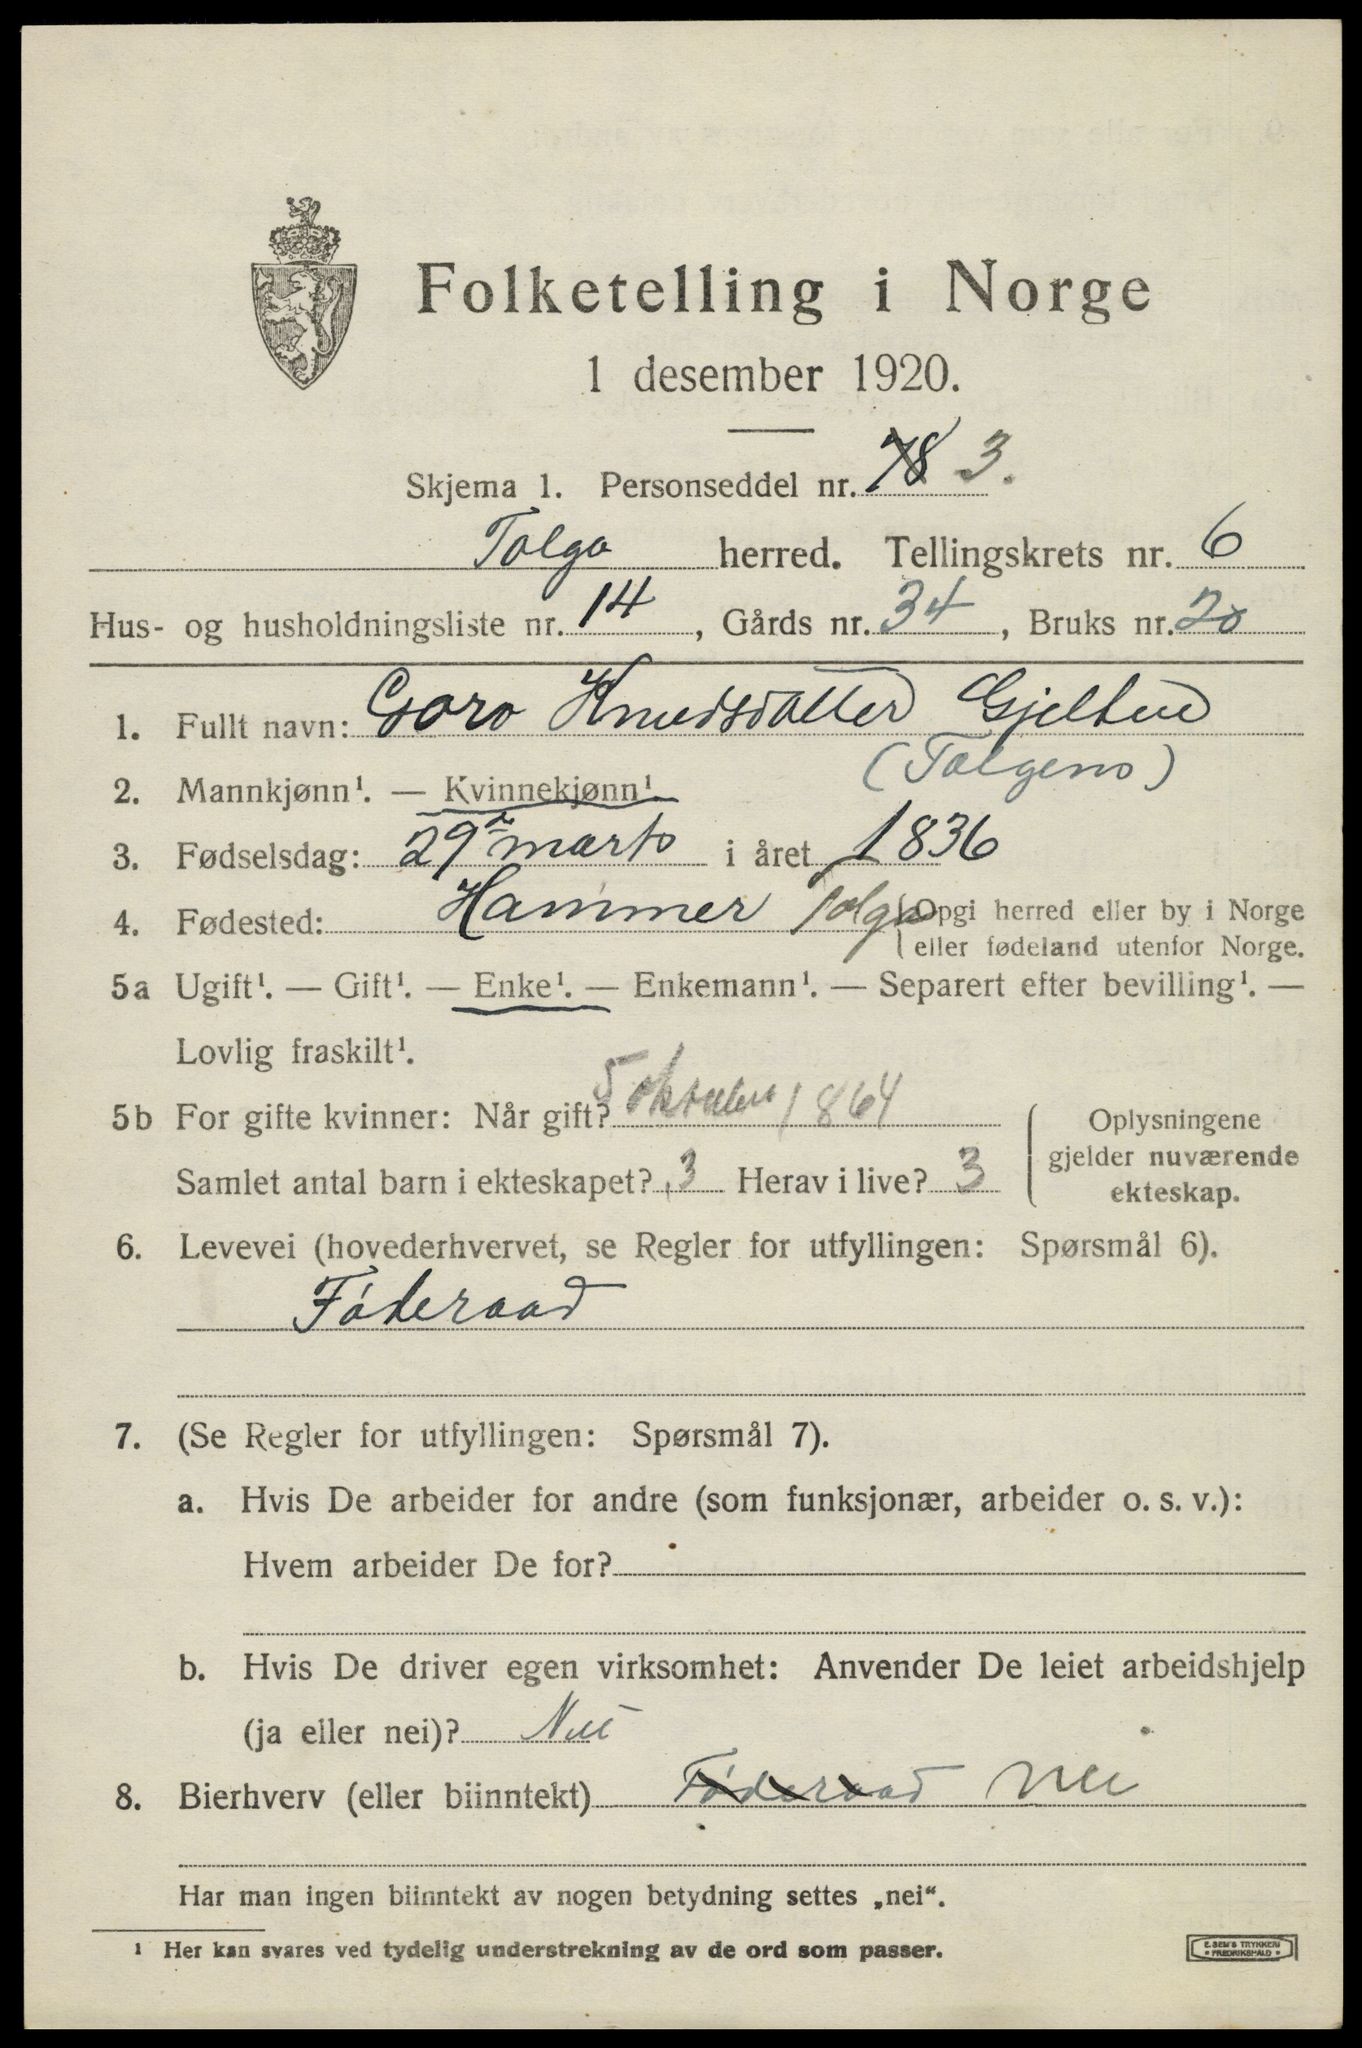 Folketelling i Norge
1 desember 1920.
Skjema 1. Personseddel nr. 78 3.
Tolga herred. Tellingskrets nr. 6
Hus- og husholdningsliste nr. 14, Gårds nr. 34, Bruks nr. 20
1. Fullt navn: Goro Knudsdatter Gjelten
(Tolgens)
2. Mannkjønn¹. — Kvinnekjønn¹.
3. Fødselsdag: 29de marts i året 1836
4. Fødested: Hammer Tolga {Opgi herred eller by i Norge
eller fødeland utenfor Norge.
5a Ugift¹. — Gift¹. — Enke¹. — Enkemann¹. — Separert efter bevilling¹. —
Lovlig fraskilt¹.
5b For gifte kvinner: Når gift? 5 oktober 1864
Samlet antal barn i ekteskapet? 3 Herav i live? 3
Oplysningene
gjelder nuværende
ekteskap.
6. Levevei (hovederhvervet, se Regler for utfyllingen: Spørsmål 6).
Føderaad
7. (Se Regler for utfyllingen: Spørsmål 7).
a. Hvis De arbeider for andre (som funksjonær, arbeider o. s. v.):
Hvem arbeider De for?
b. Hvis De driver egen virksomhet: Anvender De leiet arbeidshjelp
(ja eller nei)? Nei
8. Bierhverv (eller biinntekt) Føderaad nei
Har man ingen biinntekt av nogen betydning settes „nei“.
¹ Her kan svares ved tydelig understrekning av de ord som passer.
E. SEM'S TRYKKERI
• FREDRIKSHALD •